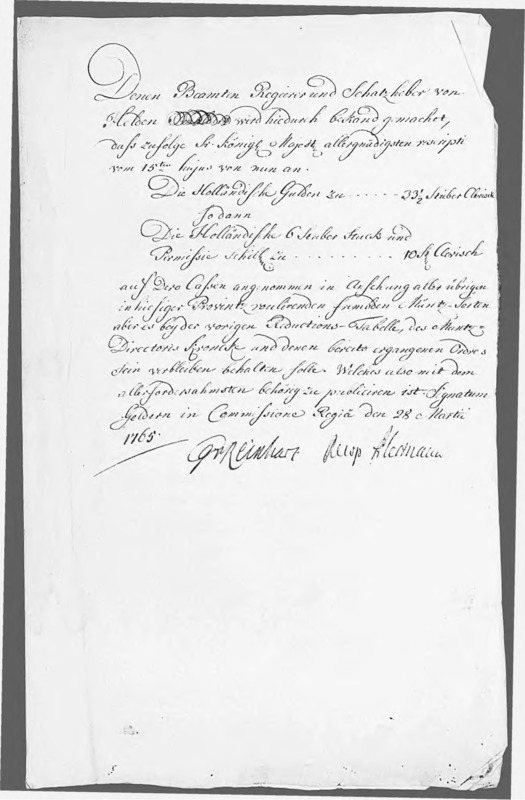 Denen Beamten Regierer und Schatzheber von
Helden wird hiedurch bekand gemachet,
dass zufolge Sr. Königl. Majest. allergnädigsten rescripti
vom 15ten hujus von nun an.
Die Holländische Gulden zu - - - - - - 33½ Stuber Clevisch
so dann
Die Holländische 6 Stuber Stuck und
Permissie Schill. zu - - - - - - - - - - 10 St. Clevisch
auf Dero Cassen angenommen in Ansehung aller übrigen
in hiesiger Provintz roulirenden frembden Müntz-Sorten
aber es bey der vorigen Reductions-Tabelle, des Muntz-
Directoris und denen bereits ergangenen Ordres
sein verbleiben behalten solle. Welches also mit dem
allerfordersahmsten behörig zu publiciren ist. Signatum
Geldern in Commissione Regiâ den 28 Martii
1765.
Reinhart Heermann